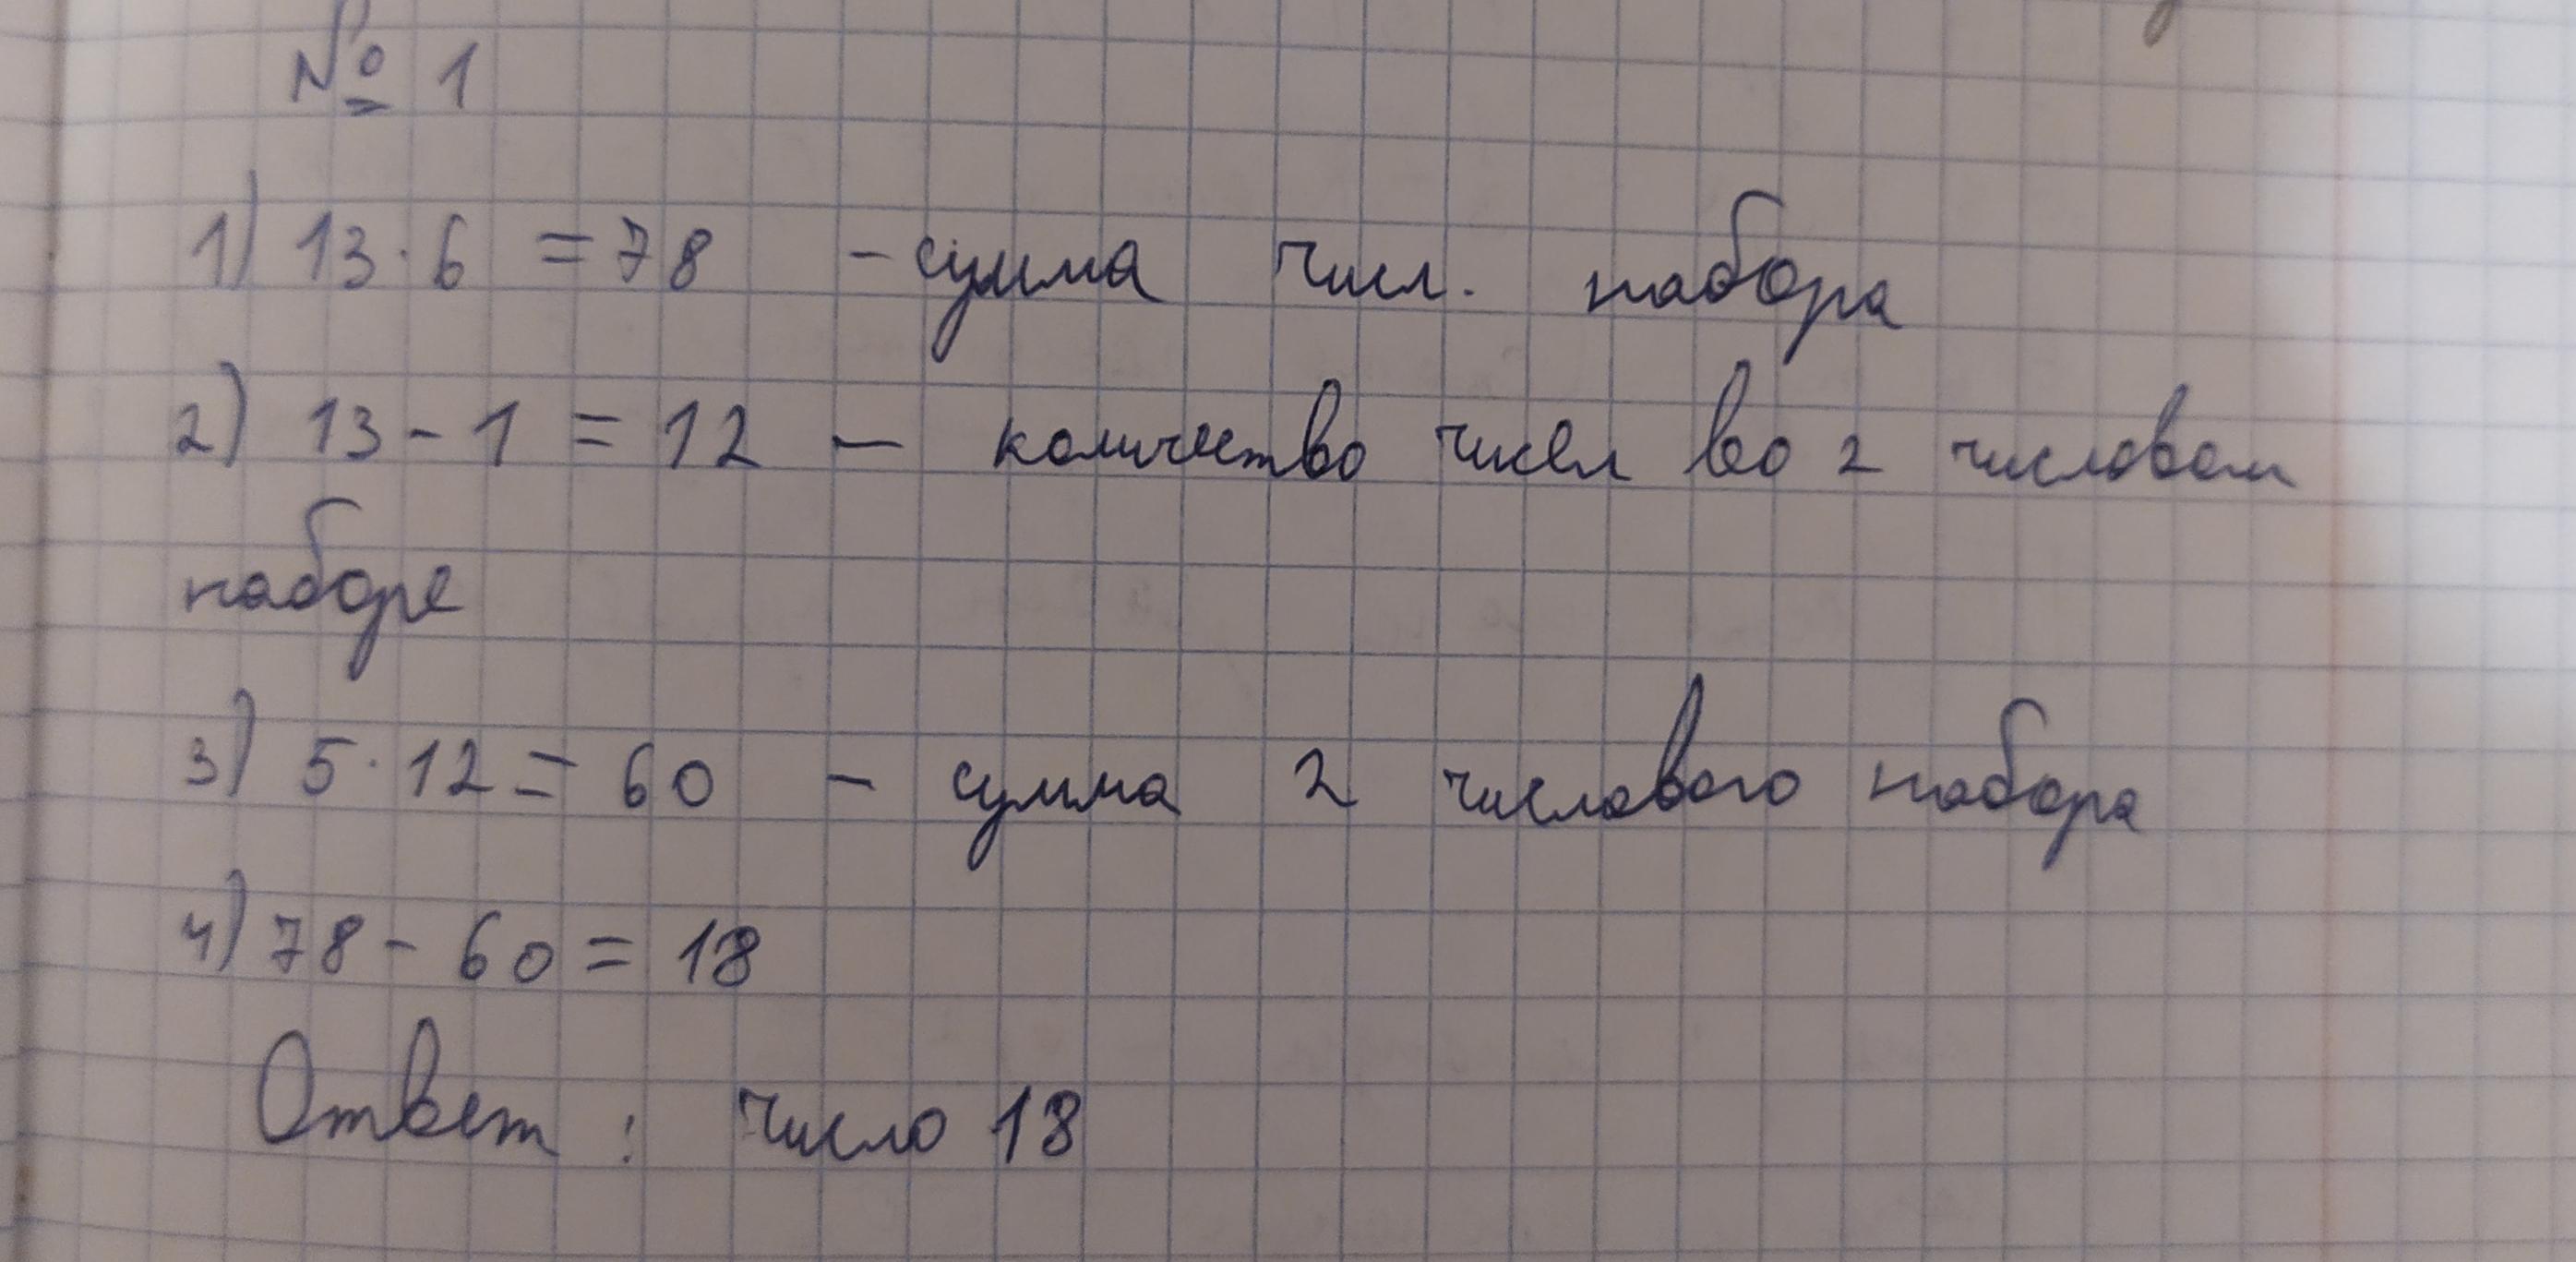 № 1
1) 13 · 6 = 78 - сумма числ. набора
2) 13 - 1 = 12 — количество чисел во 2 числовом
наборе
3) 5 · 12 = 60 - сумма 2 числового набора
4) 78 - 60 = 18
Ответ : число 18